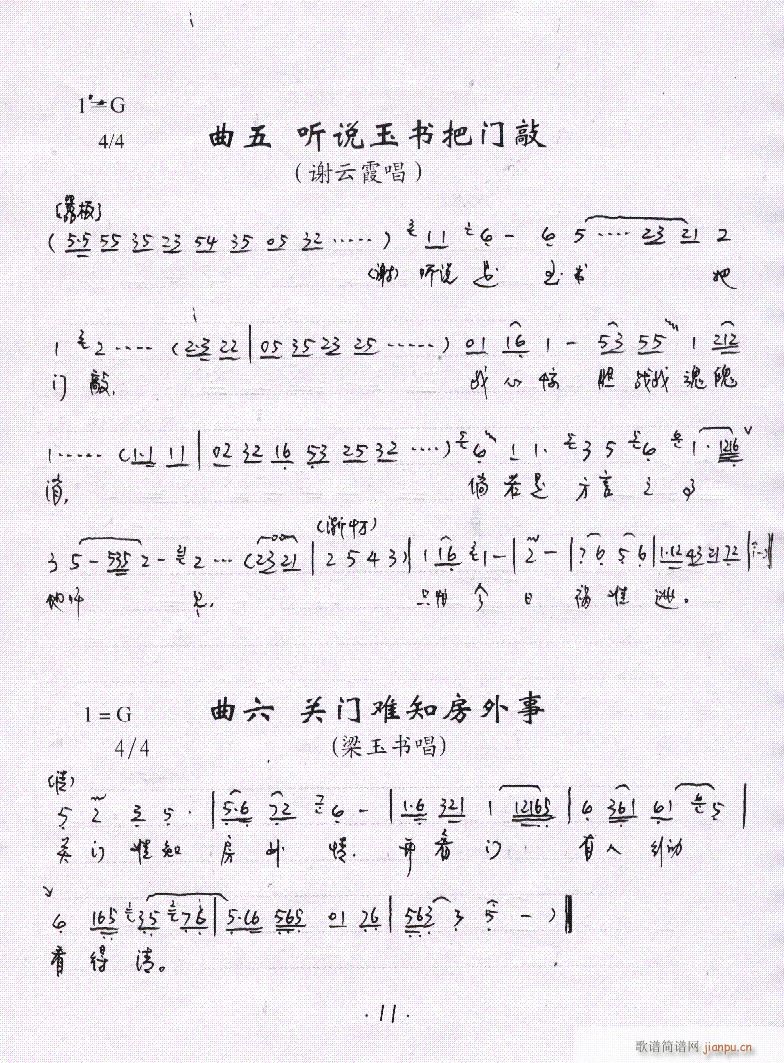 1=G
4/4
曲五 听说玉书把门敲
(谢云霞唱)
(5·5 55 35 23 54 35 05 32 ……) 11 6 - 6 5 …… 23 21 2
(谢) 听说是 玉书 把
1 2 …… (2·3 22 | 05 35 23 25 ……) 01 16 1 - 53 55 1 212
门敲, 战心惊 胆战战魂魄
1 …… (1·1 11 | 02 32 16 53 25 32 ……) 6 1 1· 3 5 6 1·1216
消, 倘若是 方言
3 5 - 535 2 - 2 … (23 21 | 2 5 4 3) | 1 16 1 - | 2 - | 76 56 | 1·12 43 21 72 |
只怕今日 祸难逃。
1=G
4/4
曲六 关门难知房外事
(梁玉书唱)
(清)
5 2 3 5· | 5·6 72 6 - | 1·6 321 1 12165 | 6 361 61 5 |
关门难知房外情. 开看门 有人
6 165 35 76 | 5·66 565 01 76 | 563 3 5 - )
看得清。
·11·
歌谱简谱网
jianpu.cn